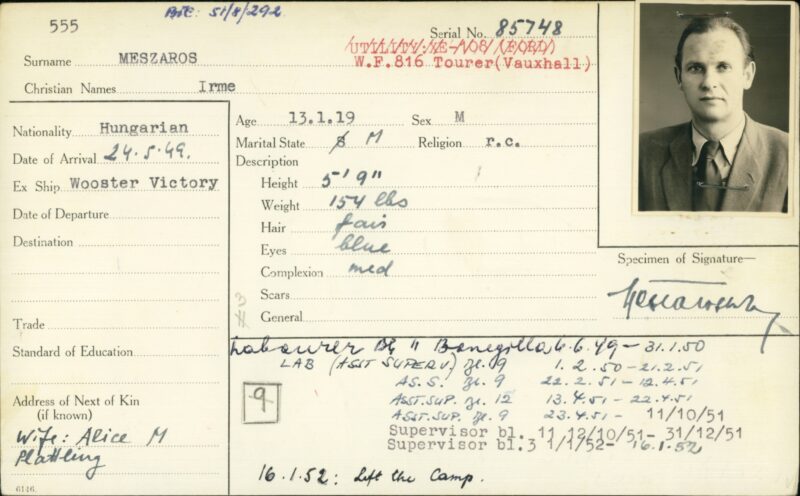 555
BIC: 51/8/292
Serial No. 85748
Surname MESZAROS
UTILITY:
W.F.816 Tourer(Vauxhall)
Christian Names Irme
Nationality Hungarian
Date of Arrival 24.5.49.
Ex Ship Wooster Victory
Date of Departure
Destination
Trade
Standard of Education
Address of Next of Kin
(if known)
Wife: Alice M
Plattling
6146.
Age 13.1.19 Sex M
Marital State M Religion r.c.
Description
Height 5' 9"
Weight 154 lbs
Hair fair
Eyes blue
Complexion med
Scars
General
Specimen of Signature—
Labourer Bl 11 Bonegilla 6.6.49 – 31.1.50
LAB (ASST SUPERV.) Bl. 9 1.2.50 – 21.2.51
AS. S. Bl. 9 22.2.51 – 12.4.51
ASST. SUP. Bl. 12 13.4.51 – 22.4.51
ASST. SUP. Bl. 9 23.4.51 – 11/10/51
Supervisor bl. 11 12/10/51– 31/12/51
Supervisor bl.3 1/1/52– 16.1.52
9
16.1.52: Left the Camp.